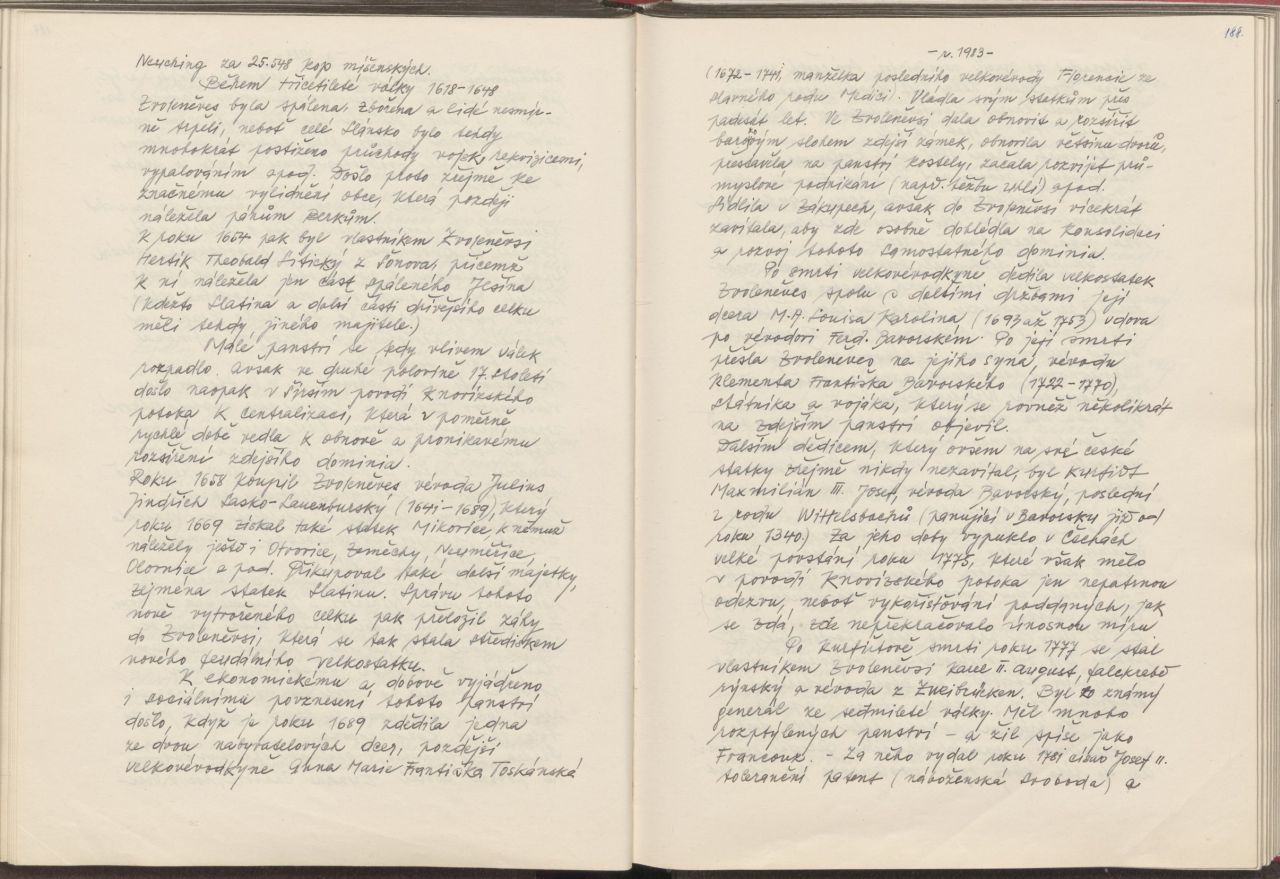 Neuching za 25.548 kop míšenských.
Během třicetileté války 1618-1648
Zvoleněves byla spálena, zbořena a lidé nesmír-
ně trpěli, neboť celé Slánsko bylo tehdy
mnohokrát postiženo průchody vojsk, rekvizicemi,
vypalováním apod. Došlo proto zřejmě ke
značnému vylidnění obce, která později
náležela pánům Berkům.
K roku 1654 pak byl vlastníkem Zvoleněvsi
Heršik Theobald Sitický z Šonova, přičemž
k ní náležela jen část spáleného Jesína
(kdežto Slatina a další části dřívějšího celku
měli tehdy jiného majitele.)
Malé panství se tedy vlivem válek
rozpadlo. Avšak ve druhé polovině 17. století
došlo naopak v širším povodí Knovízského
potoka k centralizaci, která v poměrně
rychlé době vedla k obnově a pronikavému
rozšíření zdejšího dominia.
Roku 1658 koupil Zvoleněves vévoda Julius
Jindřich Sasko-Lauenburský (1641-1689), který
roku 1669 získal také statek Mikovice, k němuž
náležely ještě i Otvovice, Zeměchy, Neuměřice,
Olovnice a pod. Přikupoval také další majetky,
zejména statek Slatinu. Správu tohoto
nově vytvořeného celku pak přeložil záhy
do Zvoleněvsi, která se tak stala střediskem
nového feudálního velkostatku.
K ekonomickému a dobově vyjádřeno
i sociálnímu povznesení tohoto panství
došlo, když je roku 1689 zdědila jedna
ze dvou nabyvatelových dcer, pozdější
velkovévodkyně Anna Marie Františka Toskánská
188.
- r. 1983 -
(1672-1741, manželka posledního velkovévody Florencie ze
slavného rodu Medici). Vládla svým statkům přes
padesát let. Ve Zvoleněvsi dala obnovit a rozšířit
barokovým slohem zdejší zámek, obnovila většinu dvorů,
přestavěla na panství kostely, začala rozvíjet prů-
myslové podnikání (např. těžbu uhlí) apod.
Sídlila v Zákupech, avšak do Zvoleněvsi vícekrát
zavítala, aby zde osobně dohlédla na konsolidaci
a rozvoj tohoto samostatného dominia.
Po smrti velkovévodkyně dědila velkostatek
Zvoleněves spolu s dalšími državami její
dcera M.A. Louisa Karolina (1693 až 1753) vdova
po vévodovi Ferd. Bavorském. Po její smrti
přešla Zvoleněves na jejího syna, vévodu
Klementa Františka Bavorského (1722-1770),
státníka a vojáka, který se rovněž několikrát
na zdejším panství objevil.
Dalším dědicem, který ovšem na své české
statky zřejmě nikdy nezavítal, byl kurfiřt
Maxmilián III. Josef, vévoda Bavorský, poslední
z rodu Wittelsbachů (panující v Bavorsku již od
roku 1340.) Za jeho doby vypuklo v Čechách
velké povstání roku 1775, které však mělo
v povodí Knovízského potoka jen nepatrnou
odezvu, neboť vykořisťování poddaných, jak
se zdá, zde nepřekračovalo únosnou míru
Po kurfiřtově smrti roku 1777 se stal
vlastníkem Zvoleněvsi Karel II. August, falckrabě
rýnský a vévoda z Zweibrücken. Byl to známý
generál ze sedmileté války. Měl mnoho
rozptýlených panství - a žil spíše jako
Francouz. - Za něho vydal roku 1781 císař Josef II.
toleranční patent (náboženská svoboda) a